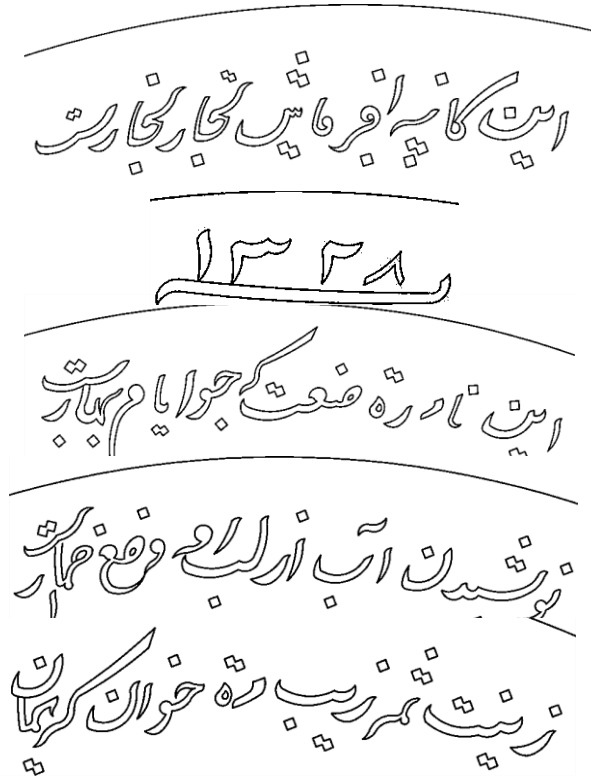 این کاسه از فرمایش تجار بخارست
١٣٢٨
این نادره صنعت که چو ایام بهارست
نوشیدن آب از لب او رفع خمارست
زینت ثمر زیب ده خوان کریمان